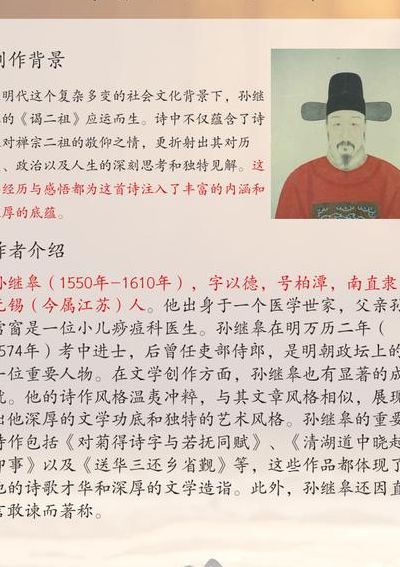 创作背景
明代这个复杂多变的社会文化背景下，孙继
的《谒二祖》应运而生。诗中不仅蕴含了诗
对禅宗二祖的敬仰之情，更折射出其对历
、政治以及人生的深刻思考和独特见解。这
经历与感悟都为这首诗注入了丰富的内涵和
厚的底蕴。
作者介绍
孙继皋（1550年-1610年），字以德，号柏潭，南直隶
无锡（今属江苏）人。他出身于一个医学世家，父亲孙
雪窗是一位小儿痧痘科医生。孙继皋在明万历二年（
1574年）考中进士，后曾任吏部侍郎，是明朝政坛上的
一位重要人物。在文学创作方面，孙继皋也有显著的成
就。他的诗作风格温夷冲粹，与其文章风格相似，展现
出他深厚的文学功底和独特的艺术风格。孙继皋的重要
诗作包括《对菊得诗字与若抚同赋》、《清湖道中晓起
即事》以及《送华三还乡省觐》等，这些作品都体现了
他的诗歌才华和深厚的文学造诣。此外，孙继皋还因直
言敢谏而著称。